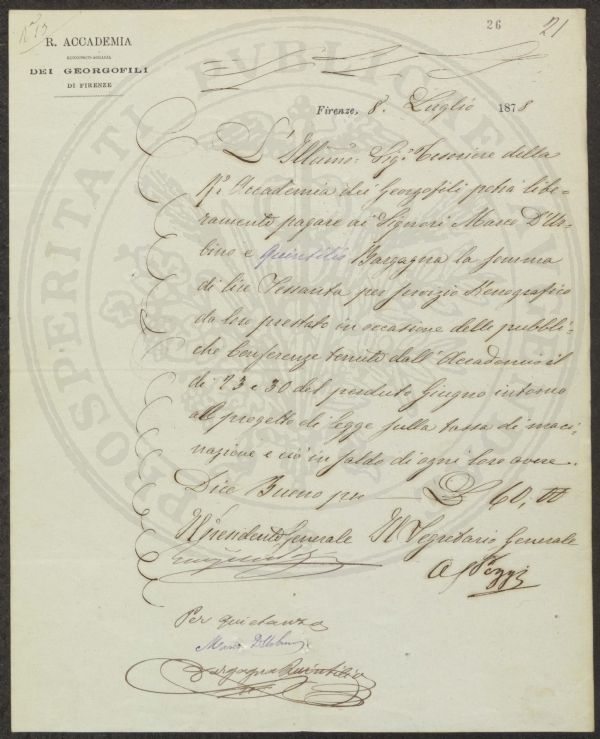 N° 13
26
21
R. ACCADEMIA
ECONOMICO-AGRARIA
DEI GEORGOFILI
DI FIRENZE
PROSPERITATI PUBLICAE AUGENDAE
Firenze, 8. Luglio 1878
L'Illmo: Sigr. Tesoriere della
Rl. Accademia dei Georgofili potrà libe-
ramente pagare ai Signori Marco D'Ur-
bino e Quintilio Bargagna la somma
di lire Sessanta per servizio Stenografico
da loro prestato in occasione delle pubbli-
che Conferenze tenute dall'Accademia il
dì 23 e 30 del perduto Giugno intorno
al progetto di Legge sulla tassa di maci-
nazione e ciò in saldo di ogni loro avere.
Dico Buono per — L 60,00
Il Presidente Generale Il Segretario Generale
Per quietanza
Marco D'Urbino
Bargagna Quintilio